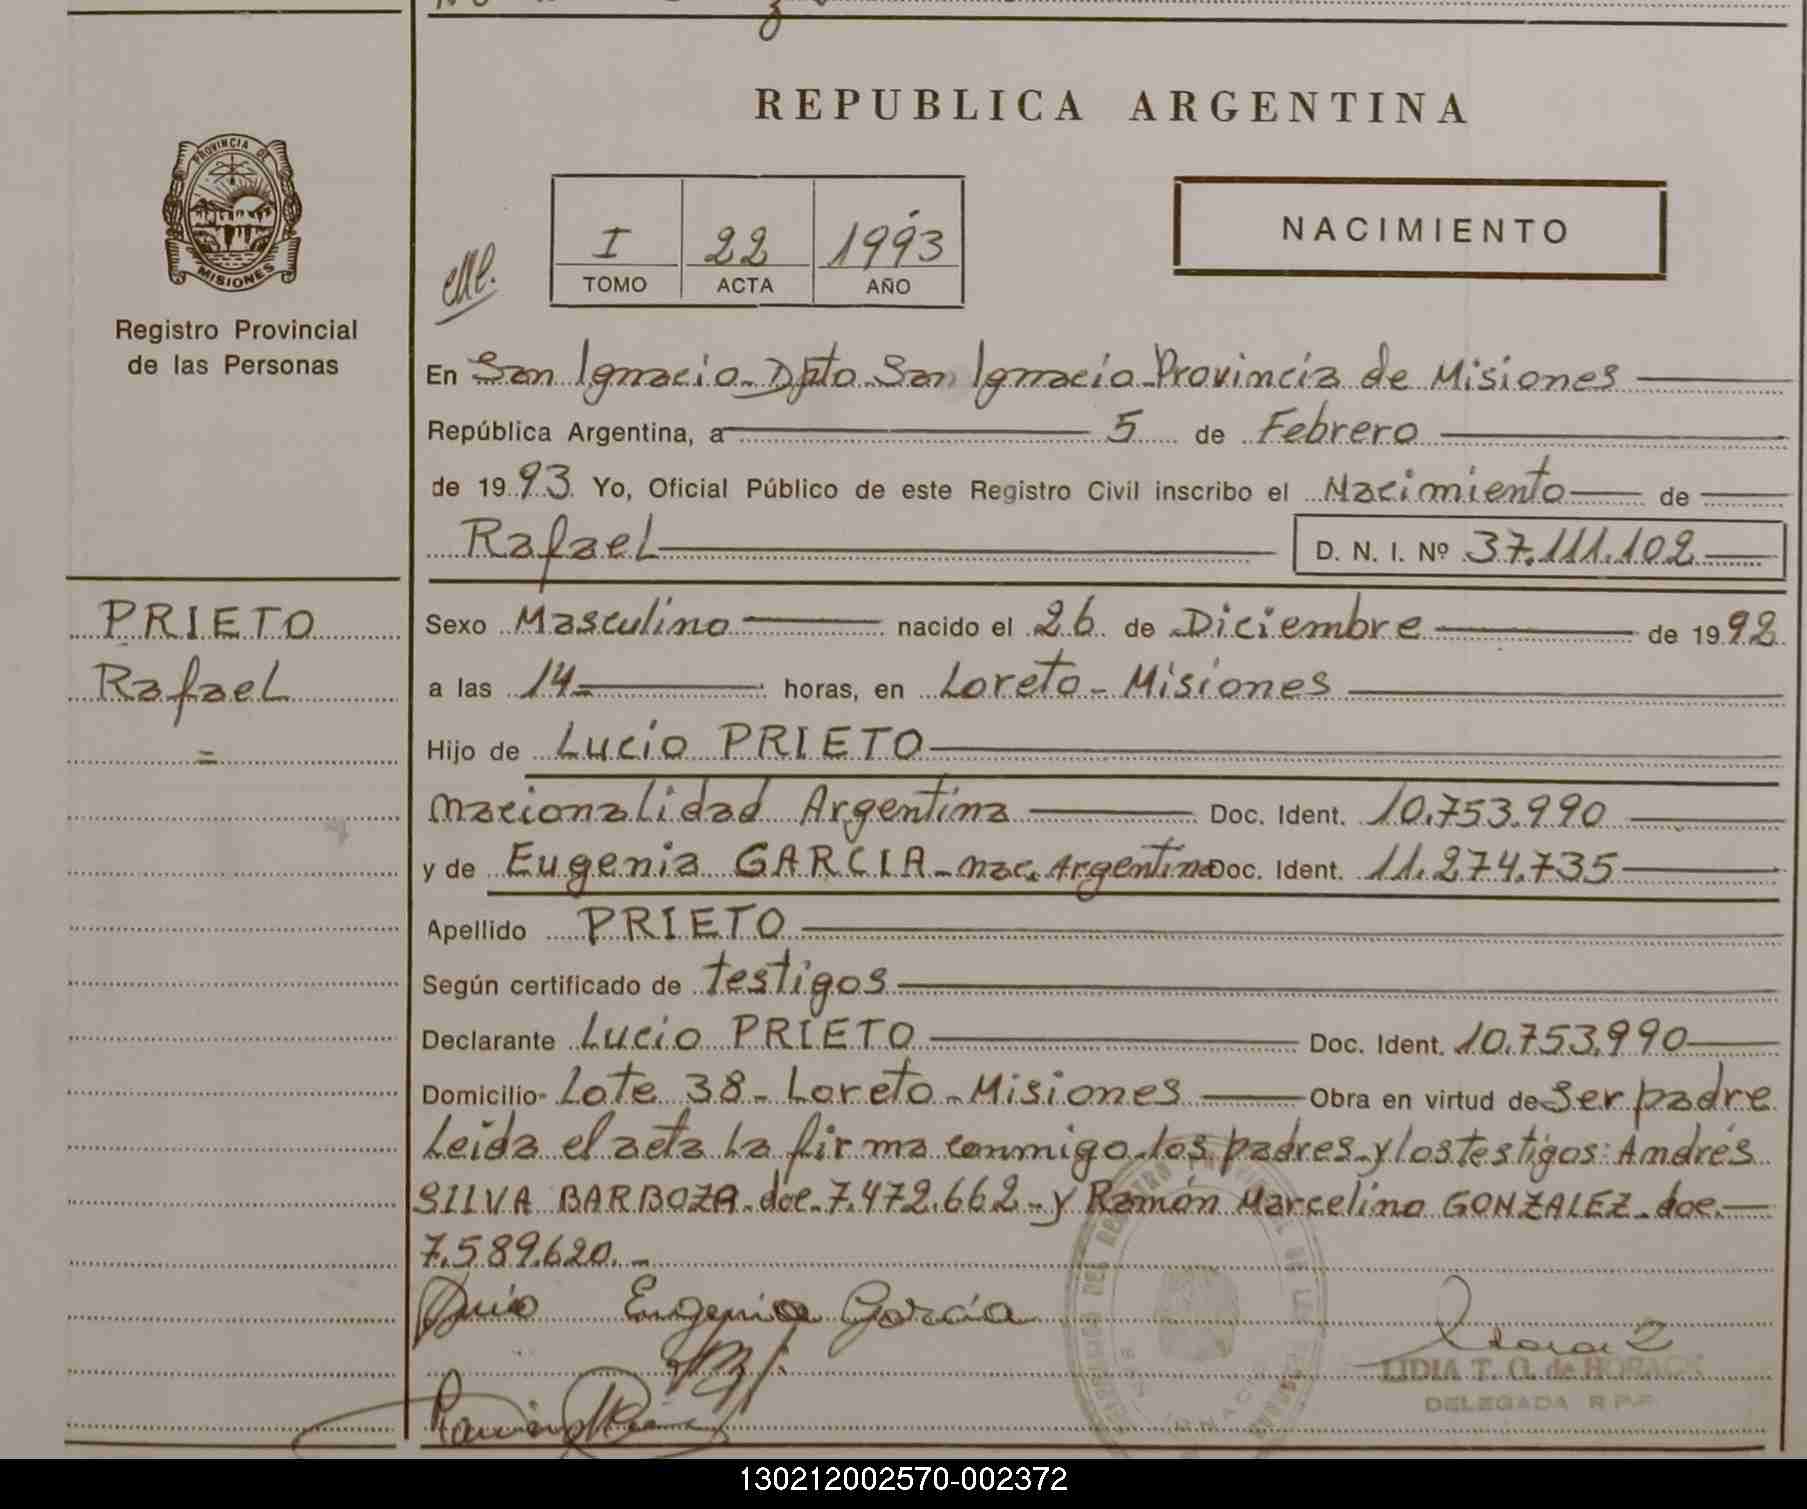 REPUBLICA ARGENTINA
PROVINCIA DE
MISIONES
Registro Provincial
de las Personas
I 22 1993
TOMO ACTA AÑO
NACIMIENTO
En San Ignacio - Dpto San Ignacio - Provincia de Misiones
República Argentina, a 5 de Febrero
de 1993 Yo, Oficial Público de este Registro Civil inscribo el Nacimiento de
Rafael D. N. I. Nº 37.111.102
PRIETO
Rafael
=
Sexo Masculino nacido el 26 de Diciembre de 1992
a las 14= horas, en Loreto - Misiones
Hijo de Lucio PRIETO
nacionalidad Argentina Doc. Ident. 10.753.990
y de Eugenia GARCIA - nac. Argentina Doc. Ident. 11.274.735
Apellido PRIETO
Según certificado de testigos
Declarante Lucio PRIETO Doc. Ident. 10.753.990
Domicilio Lote 38 - Loreto - Misiones Obra en virtud de ser padre
Leída el acta la firma conmigo los padres y los testigos: Andrés
SILVA BARBOZA - doc. 7.472.662 - y Ramón Marcelino GONZALEZ - doc. -
7.589.620. -
Eugenia García
LIDIA T. G. de
DELEGADA R.P.P.
130212002570-002372